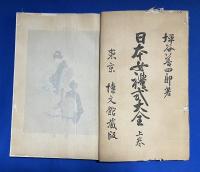 坪谷善四郎著
日本女禮式大全 上卷
東京 博文館藏版